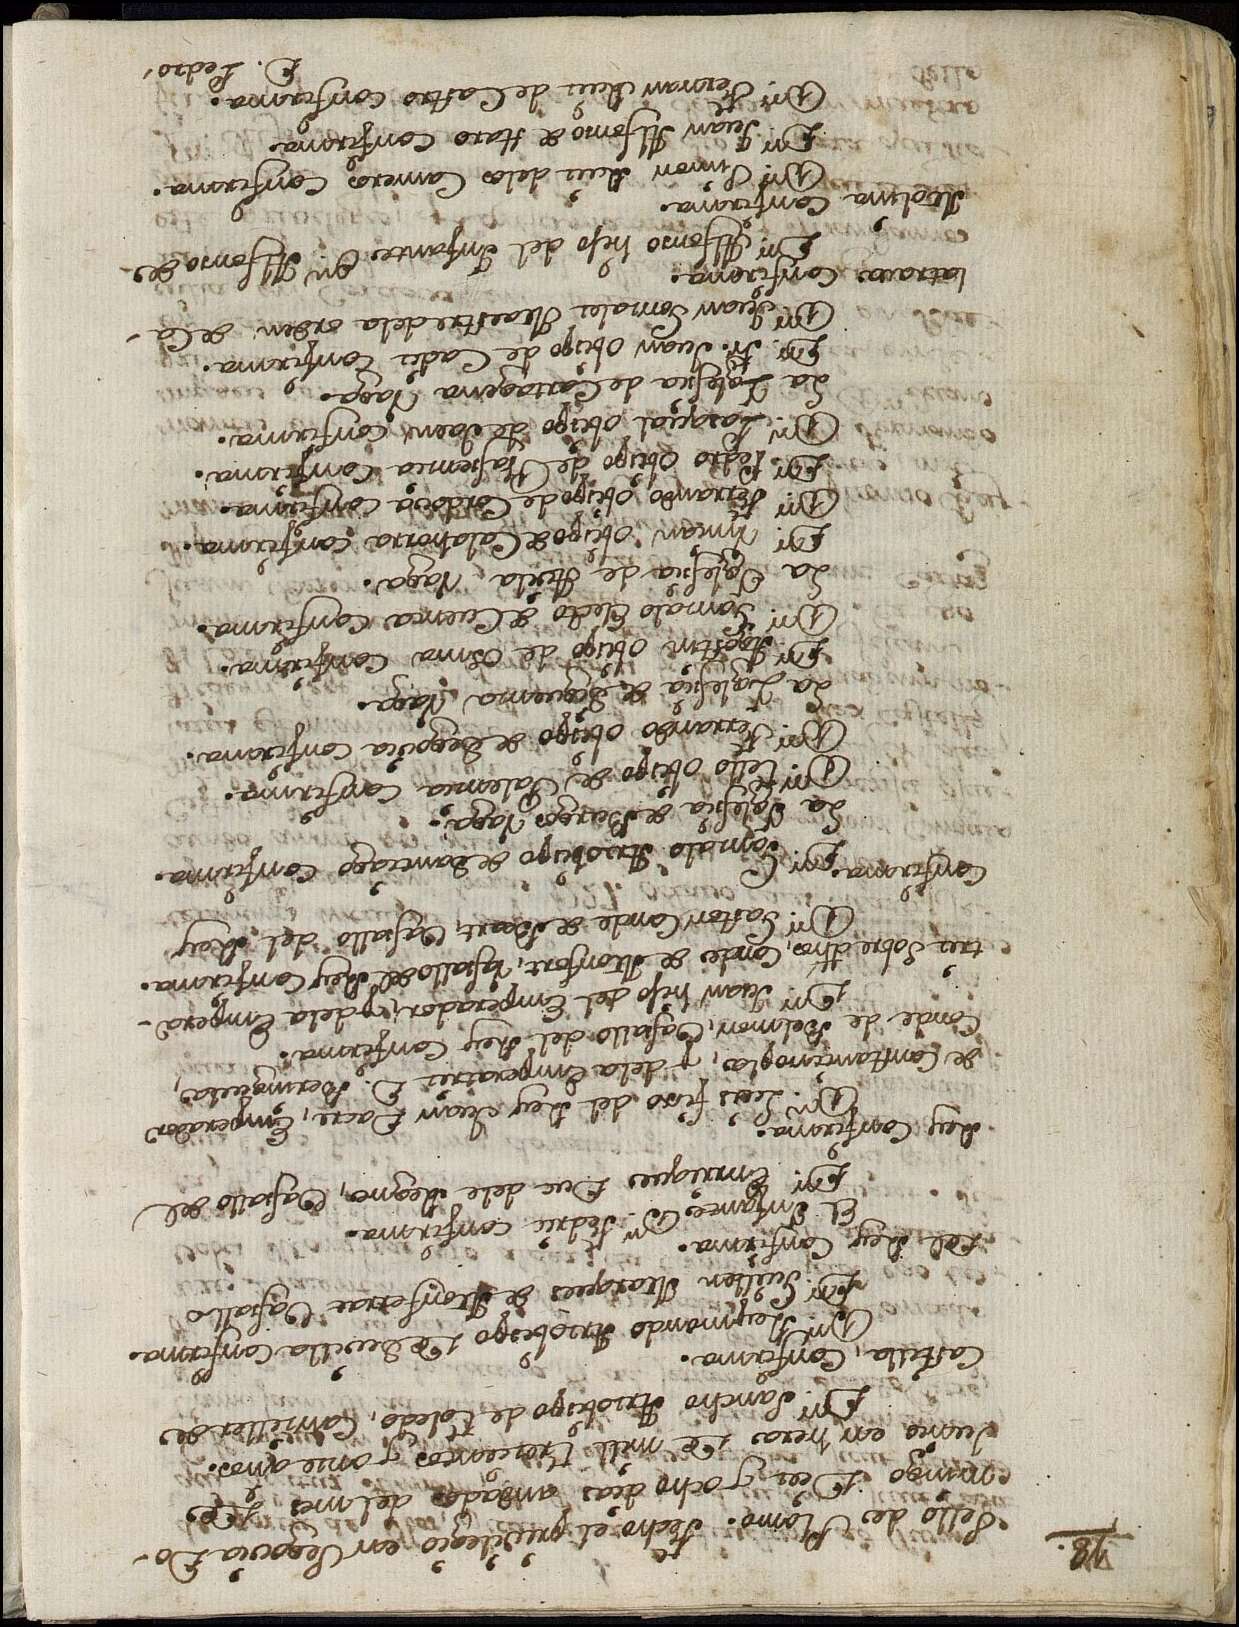 18.
Sello de Plomo. Fecho el previlegio en Segovia Do-
mingo Diez y ocho dias andados del mes de
Junio en hera de mill Trecientos y onze años.
Dn. Sancho Arzobispo de Toledo, Canceller de
Castilla, Confirma.
Dn. Reymondo Arzobispo de Sevilla Confirma.
Dn. Guillen Marques de Monferrat Vasallo
del Rey Confirma.
El Infante Dn. Fedric confirma.
Dn. Enrriques Duc dele Regne, Vasallo del
Rey Confirma.
Dn. Luis fixo del Rey Juan Dacre, Emperador
de Constantinopla, y dela Emperatriz D. Berenguela,
Conde de Belmon, Vasallo del Rey Confirma.
Dn. Juan hijo del Emperador, y dela Empera-
triz Sobre dhos, Conde de Monfort, Vasallo del Rey Confirma.
Dn. Gaston Conde de Beart, Vasallo del Rey
Confirma.
Dn. Gonzalo Arzobispo de Santiago Confirma.
La Yglesia de Burgos Vaga.
Dn. Tello obispo de Palencia Confirma.
Dn. Ferrando obispo de Segovia confirma.
La Yglesia de Siguenza Vaga.
Dn. Agostin obispo de Osma Confirma.
Dn. Gonzalo Electo de Cuenca Confirma.
La Yglesia de Avila Vaga.
Dn. Viuian obispo de Calahorra confirma.
Dn. Ferrando obispo de Cordova Confirma.
Dn. Pedro obispo de Plasencia Confirma.
Dn. Pasqual obispo de Jaen Confirma.
La Yglesia de Cartagena Vaga.
Dn. Fr. Juan obispo de Cadiz Confirma.
Dn. Juan Gonzalez Maestre dela orden de Ca-
latrava Confirma.
Dn. Alfonso hijo del Infante Dn. Alfonso de
Molina Confirma.
Dn. Simon Ruiz delos Cameros Confirma.
Dn. Juan Alfonso de Haro Confirma.
Dn. Ferran Ruiz de Castro Confirma.
D. Pedro